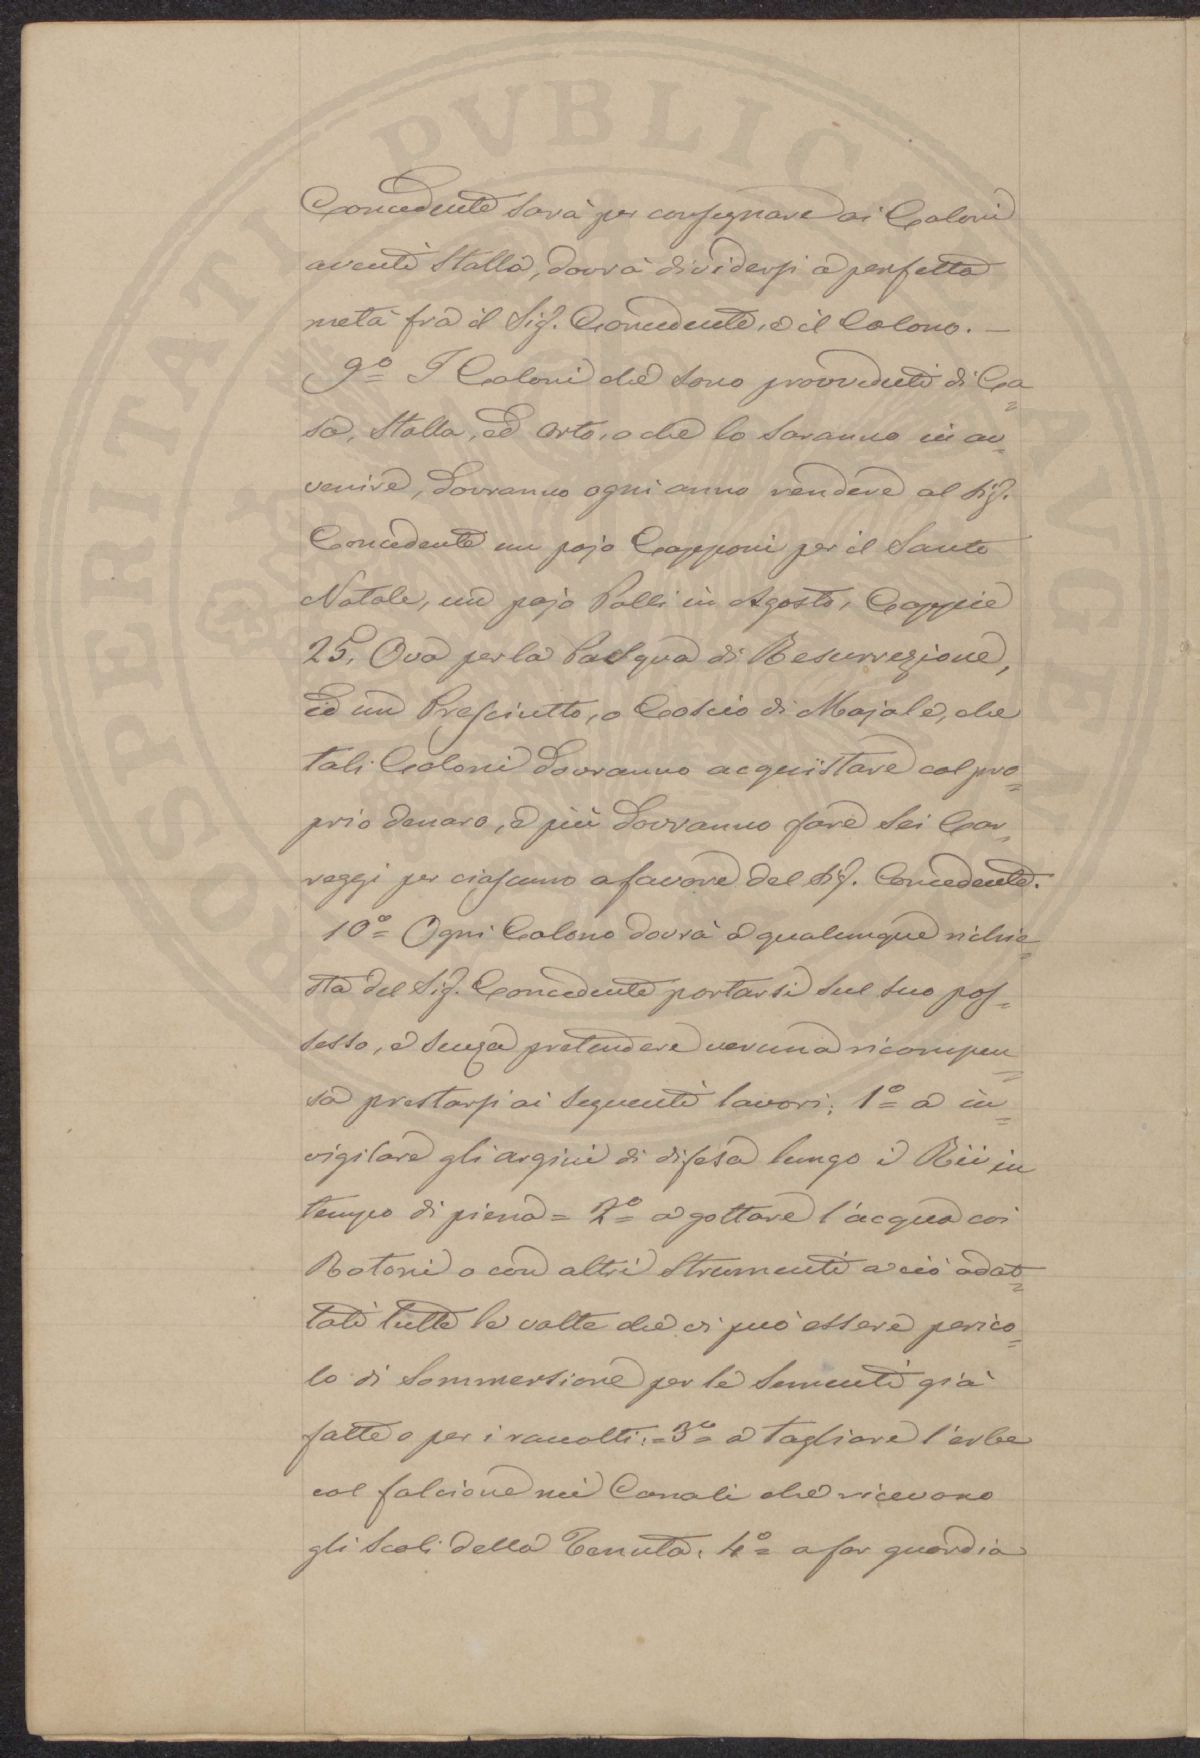 PROSPERITATI PVBLICAE AVGENDAE
Concedente sarà per consegnare ai Coloni
aventi Stalla, dovrà dividersi a perfetta
metà fra il Sig. Concedente, e il Colono. —
9.º= I Coloni che sono provveduti di Ca=
sa, Stalla, ed Orto, o che lo saranno in av=
venire, dovranno ogni anno rendere al Sig.
Concedente un pajo Capponi per il Santo
Natale, un pajo Polli in Agosto, Coppie
25, Ova per la Pasqua di Resurrezione,
ed un Presciutto, o Coscio di Majale, che
tali Coloni dovranno acquistare col pro=
prio denaro, e più dovranno fare sei Car=
reggi per ciascuno a favore del Sig. Concedente.
10º= Ogni Colono dovrà a qualunque richie=
sta del Sig. Concedente portarsi sul suo pos=
sesso, e senza pretendere veruna ricompen=
sa prestarsi ai seguenti lavori: 1º= a in=
vigilare gli argini di difesa lungo i Rii in
tempo di piena = 2º= a gottare l'acqua coi
Rotoni o con altri strumenti a ciò adat=
tati tutte le volte che vi può essere perico=
lo di Sommersione per le Sementi già
fatte o per i raccolti: = 3º= a tagliare l'erbe
col falcione nei Canali che ricevono
gli Scoli della Tenuta. 4º= a far guardia